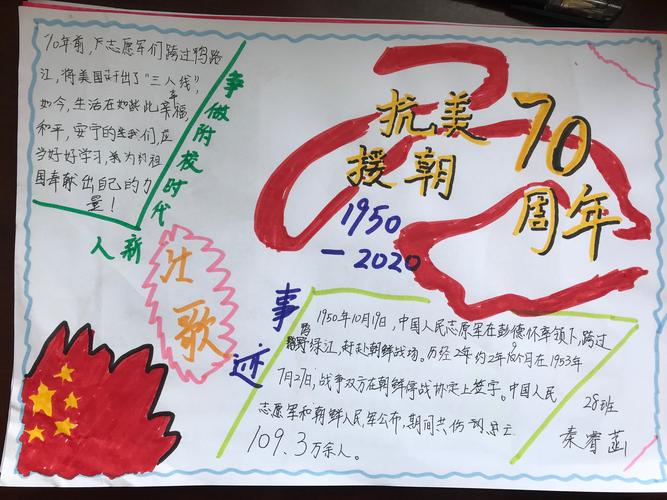 70年前,志愿军们跨过鸭
江,将美国赶出了"三八线",
如今,生活在如此幸福,
和平,安宁的我们,应
当好好学习,为祖
国奉献出自己的力
量!
争做附校时代
新人
壮歌
抗美
援朝
70
周年
1950
—2020
事迹
1950年10月19日,中国人民志愿军在彭德怀率领下,跨过
绿江,赶赴朝鲜战场。历经2年约2年9个月在1953年
7月27日,战争双方在朝鲜停战协定上签字。中国人民
志愿军和朝鲜人民军公布,期间共伤
109.3万余人。
28班
秦